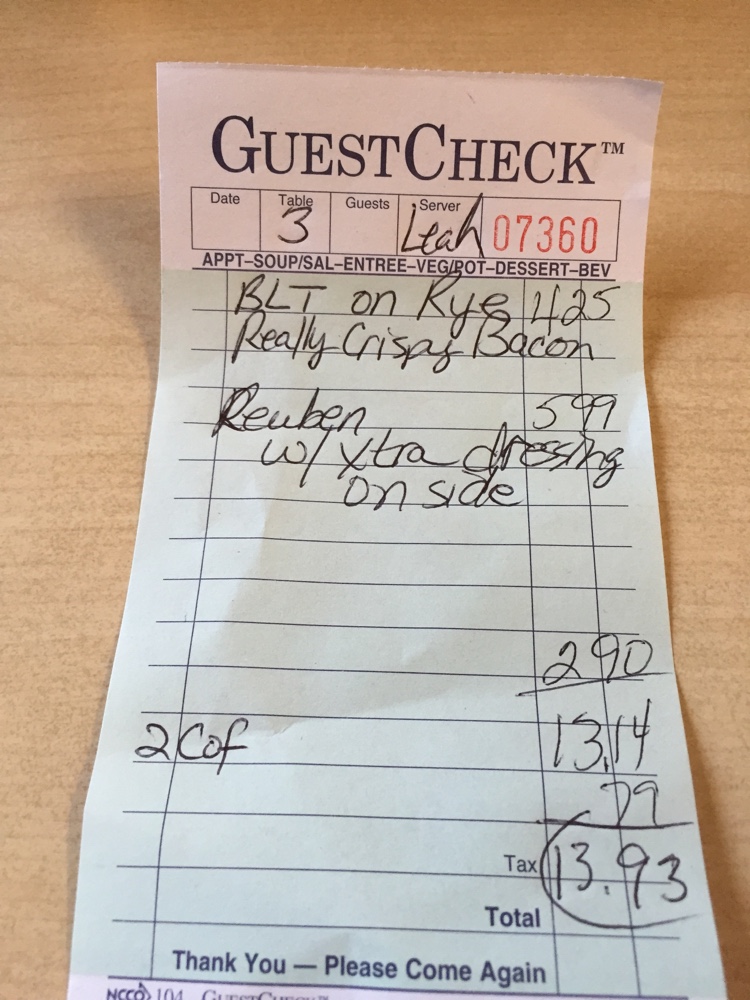 GUESTCHECK™
Date Table Guests Server
3 Leah 07360
APPT–SOUP/SAL–ENTREE–VEG/POT–DESSERT–BEV
BLT on Rye 425
Really Crispy Bacon
Reuben 599
w/ xtra dressing
on side
290
2 Cof 13.14
79
Tax 13.93
Total
Thank You — Please Come Again
NCCO 104 GUESTCHECK™